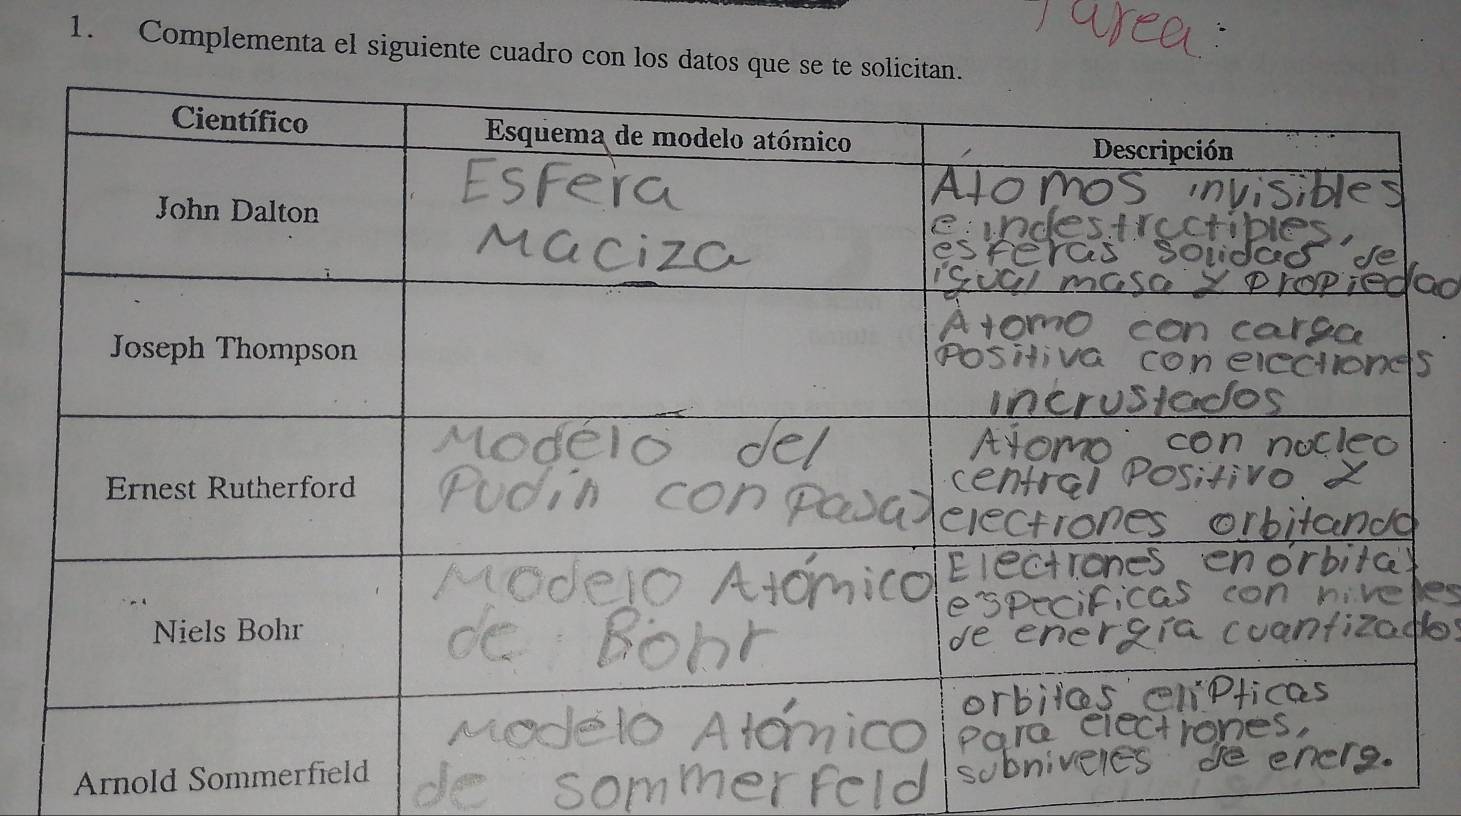 Tarea:
1. Complementa el siguiente cuadro con los datos que se te solicitan.
Científico
Esquema de modelo atómico
Descripción
John Dalton
Esfera
Maciza
Atomos invisibles
e indestructibles,
esferas solidas de
igual masa y propiedad
Joseph Thompson
Atomo con carga
Positiva con electrones
incrustados
Ernest Rutherford
Modelo del
Pudin con pasas
Atomo con nucleo
central Positivo y
electrones orbitando
Niels Bohr
Modelo Atómico
de Bohr
Electrones en órbitas
especificas con niveles
de energía cuantizados
Arnold Sommerfield
Modelo Atómico
de sommerfeld
orbitas elípticas
para electrones,
subniveles de energ.